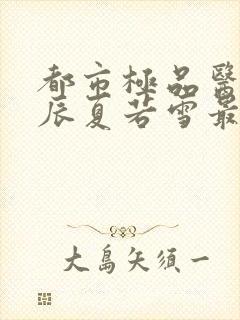 都市極品醫
辰夏若雪最
大島矢須一